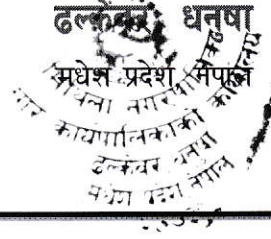 ढल्केबर, धनुषा
मधेश प्रदेश, नेपाल
मिथिला नगरपालिका
नगर कार्यपालिकाको कार्यालय
ढल्केवर धनुषा
मधेश प्रदेश नेपाल